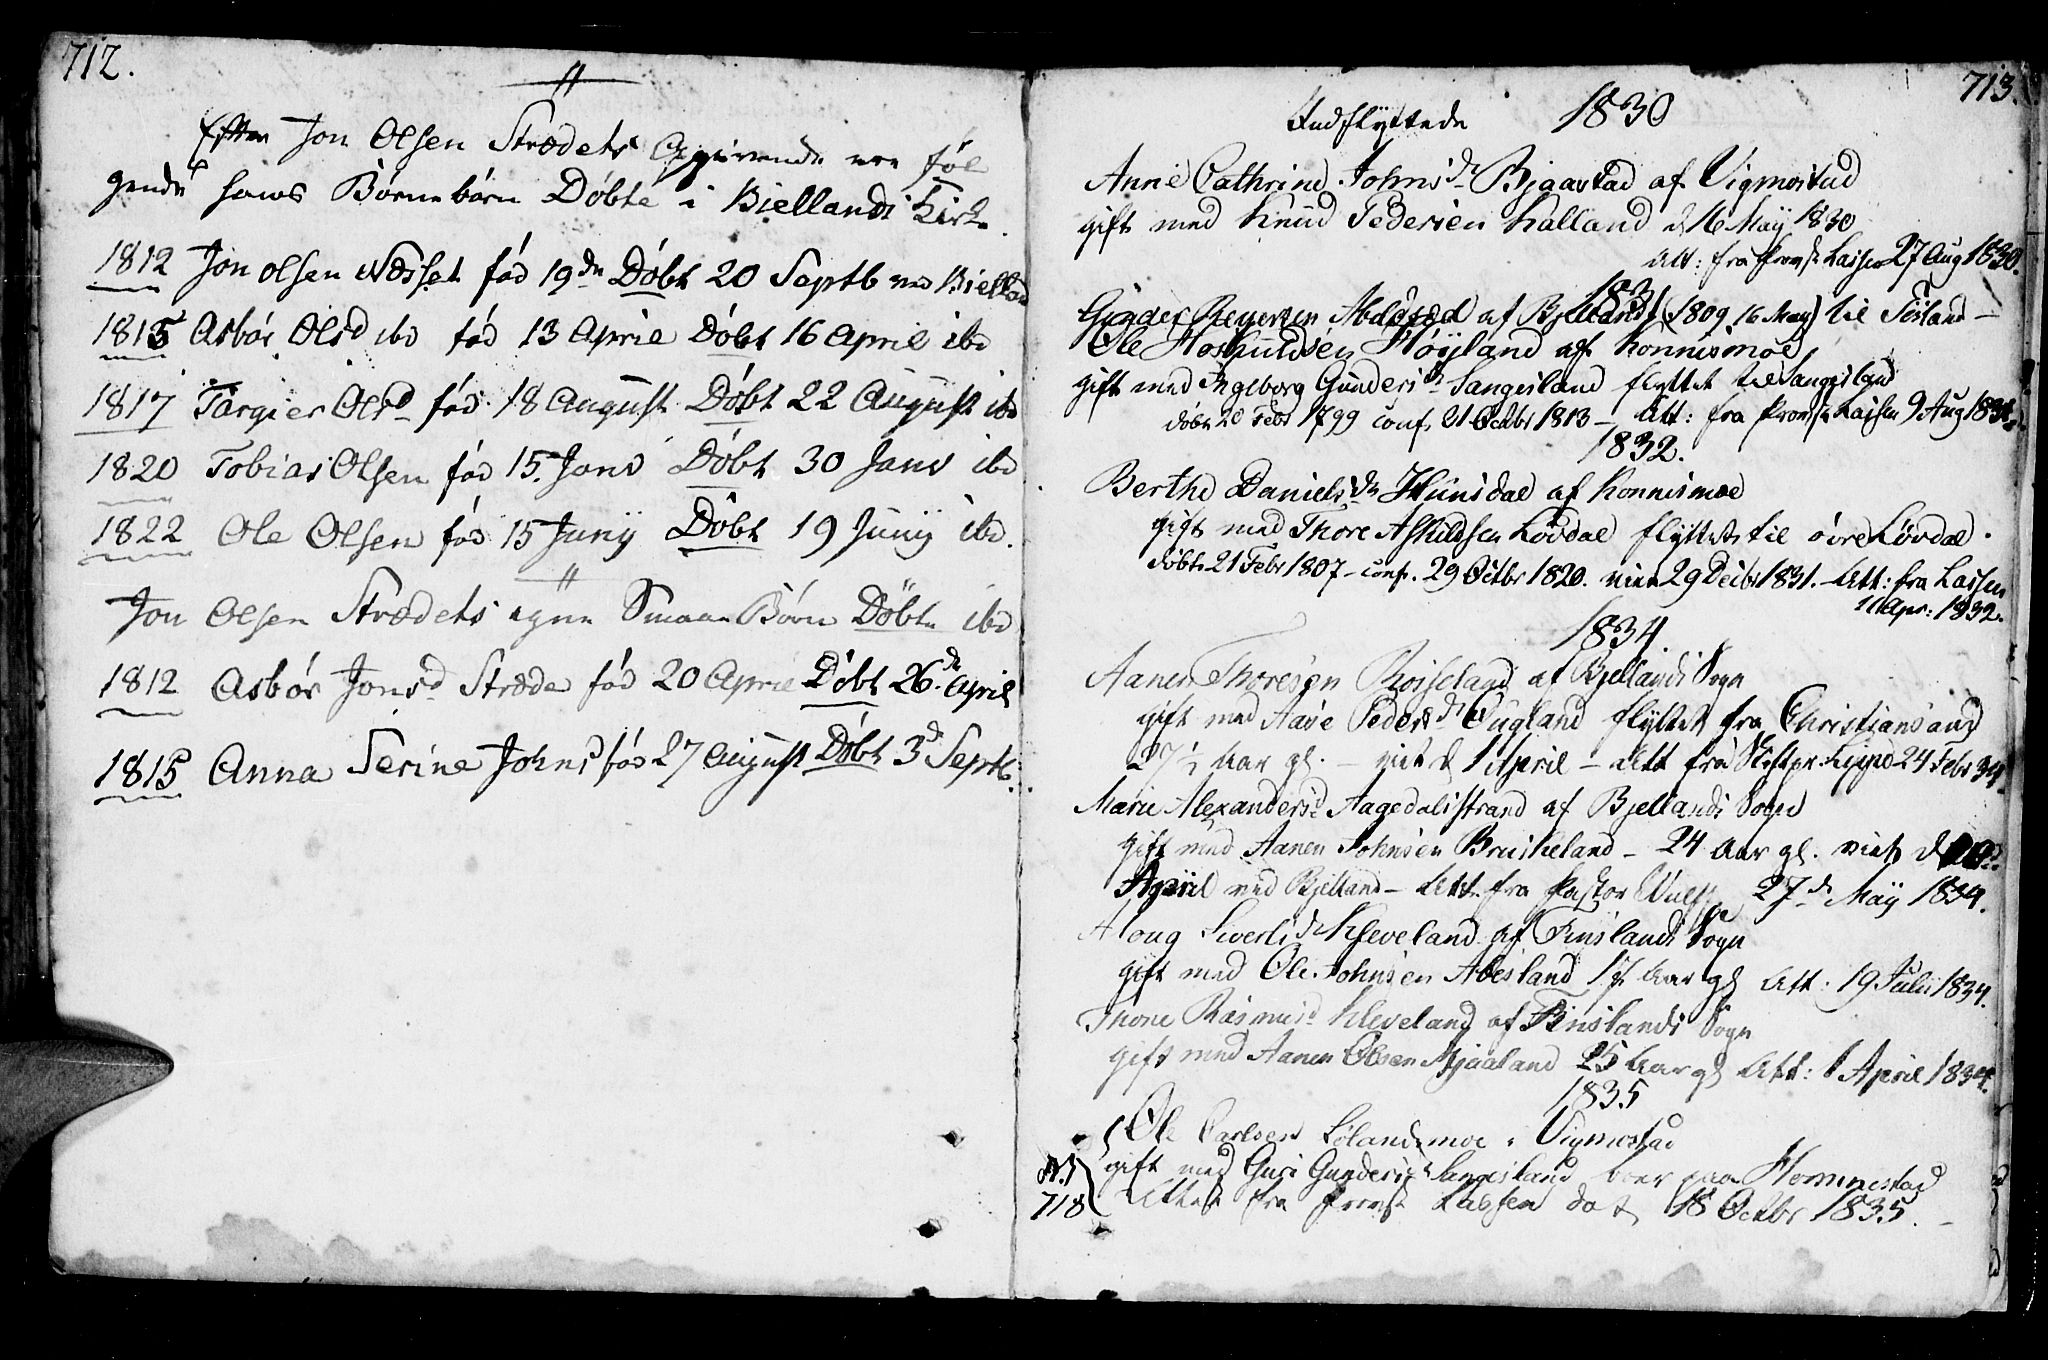 712.
Efter Jon Olsen Strædets Opgivende ere föl
gende hans Börnebörn Döbte i Biellands Kirke.
1812 Jon Olsen Næsset föd 19de Döbt 20 Septb ved Bielland
1815 Asbör Olsd ibd föd 13 April Döbt 16 April ibd
1817 Targier Olsd föd 18 August Döbt 22 August ibd
1820 Tobias Olsen föd 15. Janv Döbt 30 Janv ibd
1822 Ole Olsen föd 15 Juny Döbt 19 Juny ibd.
Jon Olsen Strædets egne Smaae Börn Döbte ibd
1812 Asbör Jonsd Stræde föd 20 April Döbt 26de April
1815 Anna Serine Johnsd föd 27 August Döbt 3de Septb.
713.
Indflyttede 1830
Anne Cathrine Johnsdr Bjaastad af Vigmostad
gift med Knud Pedersen Kalland d 16 May 1830
Att: fra Provst Lassen 27 Aug 1830.
1831
Reyersen af Bjelland (1809 16 May) til
Ole Hoskuldsen Høyland af Konnismoe
gift med Ingeborg Gundersdr Sangesland flyttet til Sangesland
döbt 20 Febr 1799 conf. 21 Octbr 1813 – Att: fra Provst Lassen 9 Aug 1831.
1832.
Berthe Danielsdr Hunsdal af Konnismoe
gift med Thore Askildsen Lövdal flyttet til övre Lövdal.
döbt 21 Febr 1807 – conf. 29 Octbr 1820. viet 29 Decbr 1831. – Att: fra Lassen
11 Apr: 1832.
1834.
Aanen Thoresen Roiseland af Bjellands Sogn
gift med Aase Pedersdr Ougland flyttet fra Christiansand
27½ Aar gl. – viet d 1 April – Att fra Stiftpr. 24 Febr 34.
Marie Alexandersdr Aagedalsstrand af Bjellands Sogn
gift med Aanen Johnsen Bruskeland – 24 Aar gl. viet d
April ved Bjelland – Att. fra Pastor Wulff 27de May 1834.
Aaoug Siversdr Kleveland af Finslands Sogn
gift med Ole Johnsen Abesland Aar gl Att: 19 Julii 1834.
Thone Rasmusd Kleveland af Finslands Sogn
gift med Aanen Olsen Mjaaland 25 Aar gl Att: 1 April 1834.
1835
Ole Carlsen Lölandsmoe i Vigmostad
gift med Guri Gundersdr Sangesland boer paa Hommestad
Attest fra Provst Lassen dat 18 Octbr 1835. –
N.1
718